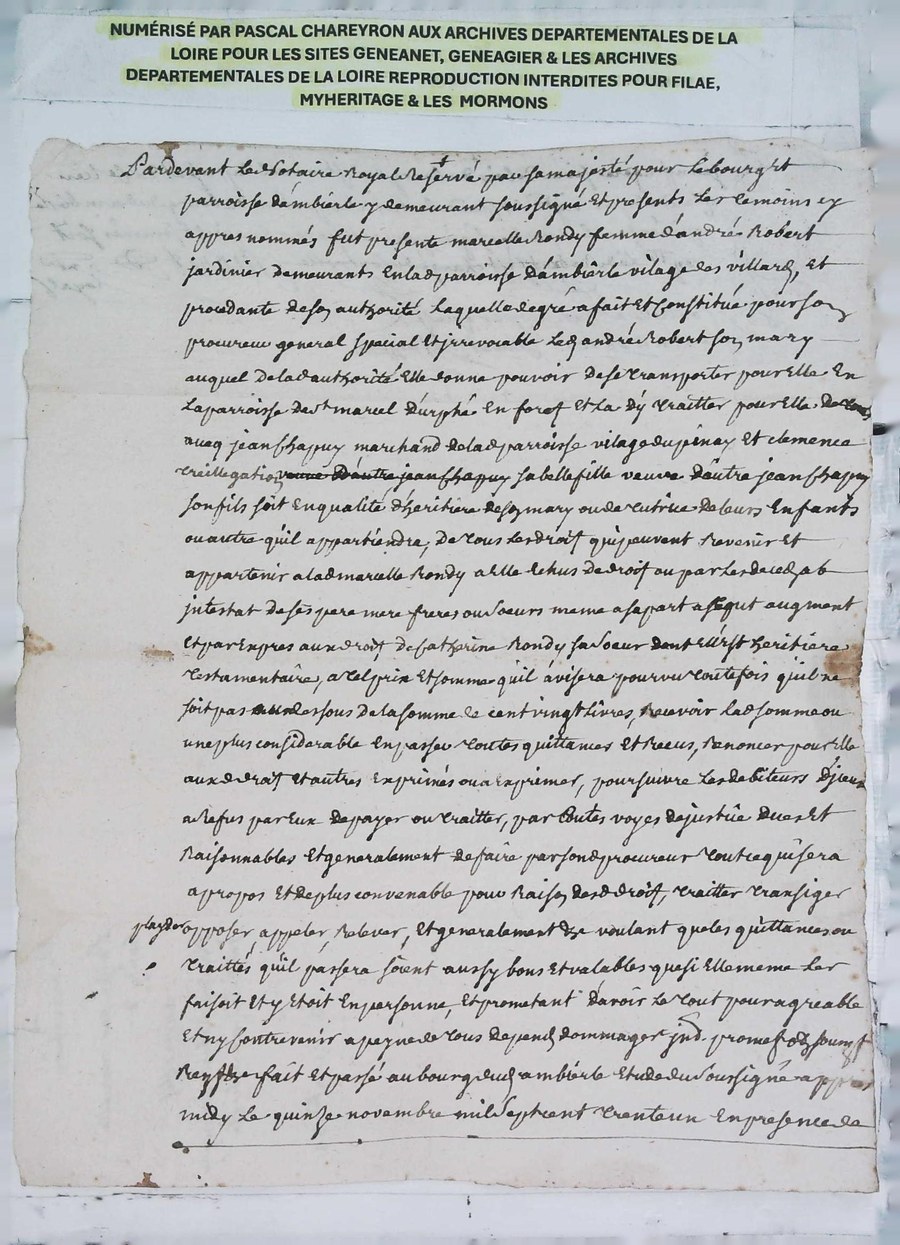 NUMÉRISÉ PAR PASCAL CHAREYRON AUX ARCHIVES DEPARTEMENTALES DE LA
LOIRE POUR LES SITES GENEANET, GENEAGIER & LES ARCHIVES
DEPARTEMENTALES DE LA LOIRE REPRODUCTION INTERDITES POUR FILAE,
MYHERITAGE & LES MORMONS
Pardevant Le Notaire Royal Reservé par sa majesté pour Le bourg et
parroisse d'ambierle y demeurant soussigné Et presents Les temoins cy
appres nommés fut presente marcelle Rondy femme d'andré Robert
jardinier demeurants En lad parroisse d'ambierle vilage des villards, Et
procedante de son authorité Laquelle de gré a fait Et Constitué pour son
procureur general special Et jrrevocable Led andré Robert son mary
auquel de lad authorité Elle donne pouvoir de se transporter pour Elle En
La parroisse de st marcel d'urphé En foret Et La Dy traitter pour Elle
avec jean Chapuy marchand de lad parroisse vilage du pinay Et clemence
veuve d'autre jean Chapuy sa belle fille veuve d'autre jean Chapuy
son fils soit En qualité d'heritiere de son mary ou de tutrice de leurs Enfants
ou autre qu'il appartiendra, De tous Les droit qui peuvent Revenir Et
appartenir a lad marcelle Rondy a Elle Echus de droit ou par Les deced ab
jntestat de ses pere mere freres ou soeurs meme a sa part augment
Et par Expres aux droit de Catherine Rondy sa soeur dont Elle Est heritiere
testamentaire, a tel prix Et somme qu'il avisera pourvu toutefois qu'il ne
soit pas au dessous de la somme de cent vingt Livres, Recevoir lad somme ou
une plus considerable En passer toutes quittances Et Receus, Renoncer pour Elle
auxd droit Et autres Exprimés ou a Exprimer, poursuivre Les debiteurs
a Refus par Eux de payer ou traitter, par toutes voyes de justice dues Et
Raisonnables Et generalement de faire par sond procureur tout ce qui sera
a propos Et de plus convenable pour Raison desd droit, traitter transiger
playder opposer, appeler, Relever, Et generalement voulant que les quittances ou
traittés qu'il passera soient aussy bons Et valables que si Elle meme Les
faisoit Et y Etoit En personne, Et prometant d'avoir Le tout pour agreable
Et n'y Contrevenir a peyne de tous depend dommages
fait Et passé au bourg dud ambierle Etude du soussigné appres
midy Le quinze novembre mil sept cent trente un En presence de